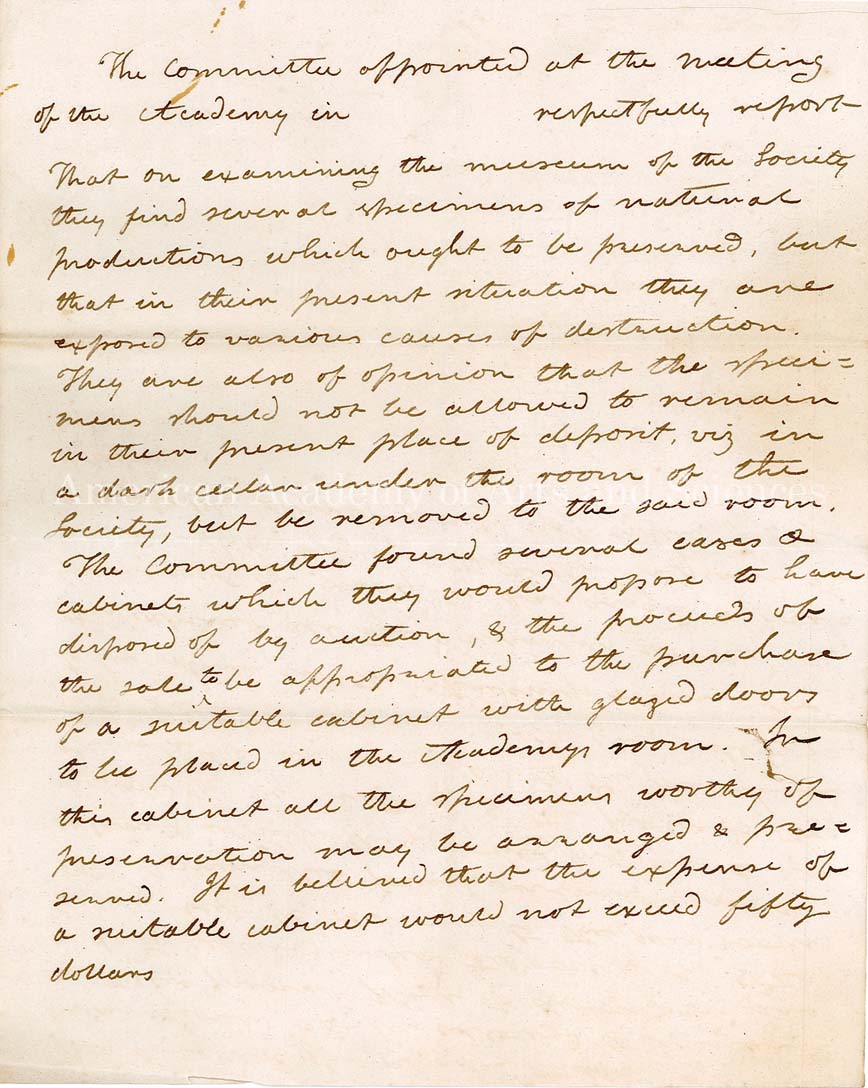 The Committee appointed at the meeting
of the Academy in respectfully report
That on examining the museum of the Society
they find several specimens of natural
productions which ought to be preserved, but
that in their present situation they are
exposed to various causes of destruction.
They are also of opinion that the speci=
mens should not be allowed to remain
in their present place of deposit, viz in
a dark cellar under the room of the
American Academy of Arts and Sciences
Society, but be removed to the said room.
The Committee found several cases &
cabinets which they would propose to have
disposed of by auction, & the proceeds of
the sale to be appropriated to the purchase
of a suitable cabinet with glazed doors
to be placed in the Academys room. In
this cabinet all the specimens worthy of
preservation may be arranged & pre=
served. It is believed that the expense of
a suitable cabinet would not exceed fifty
dollars